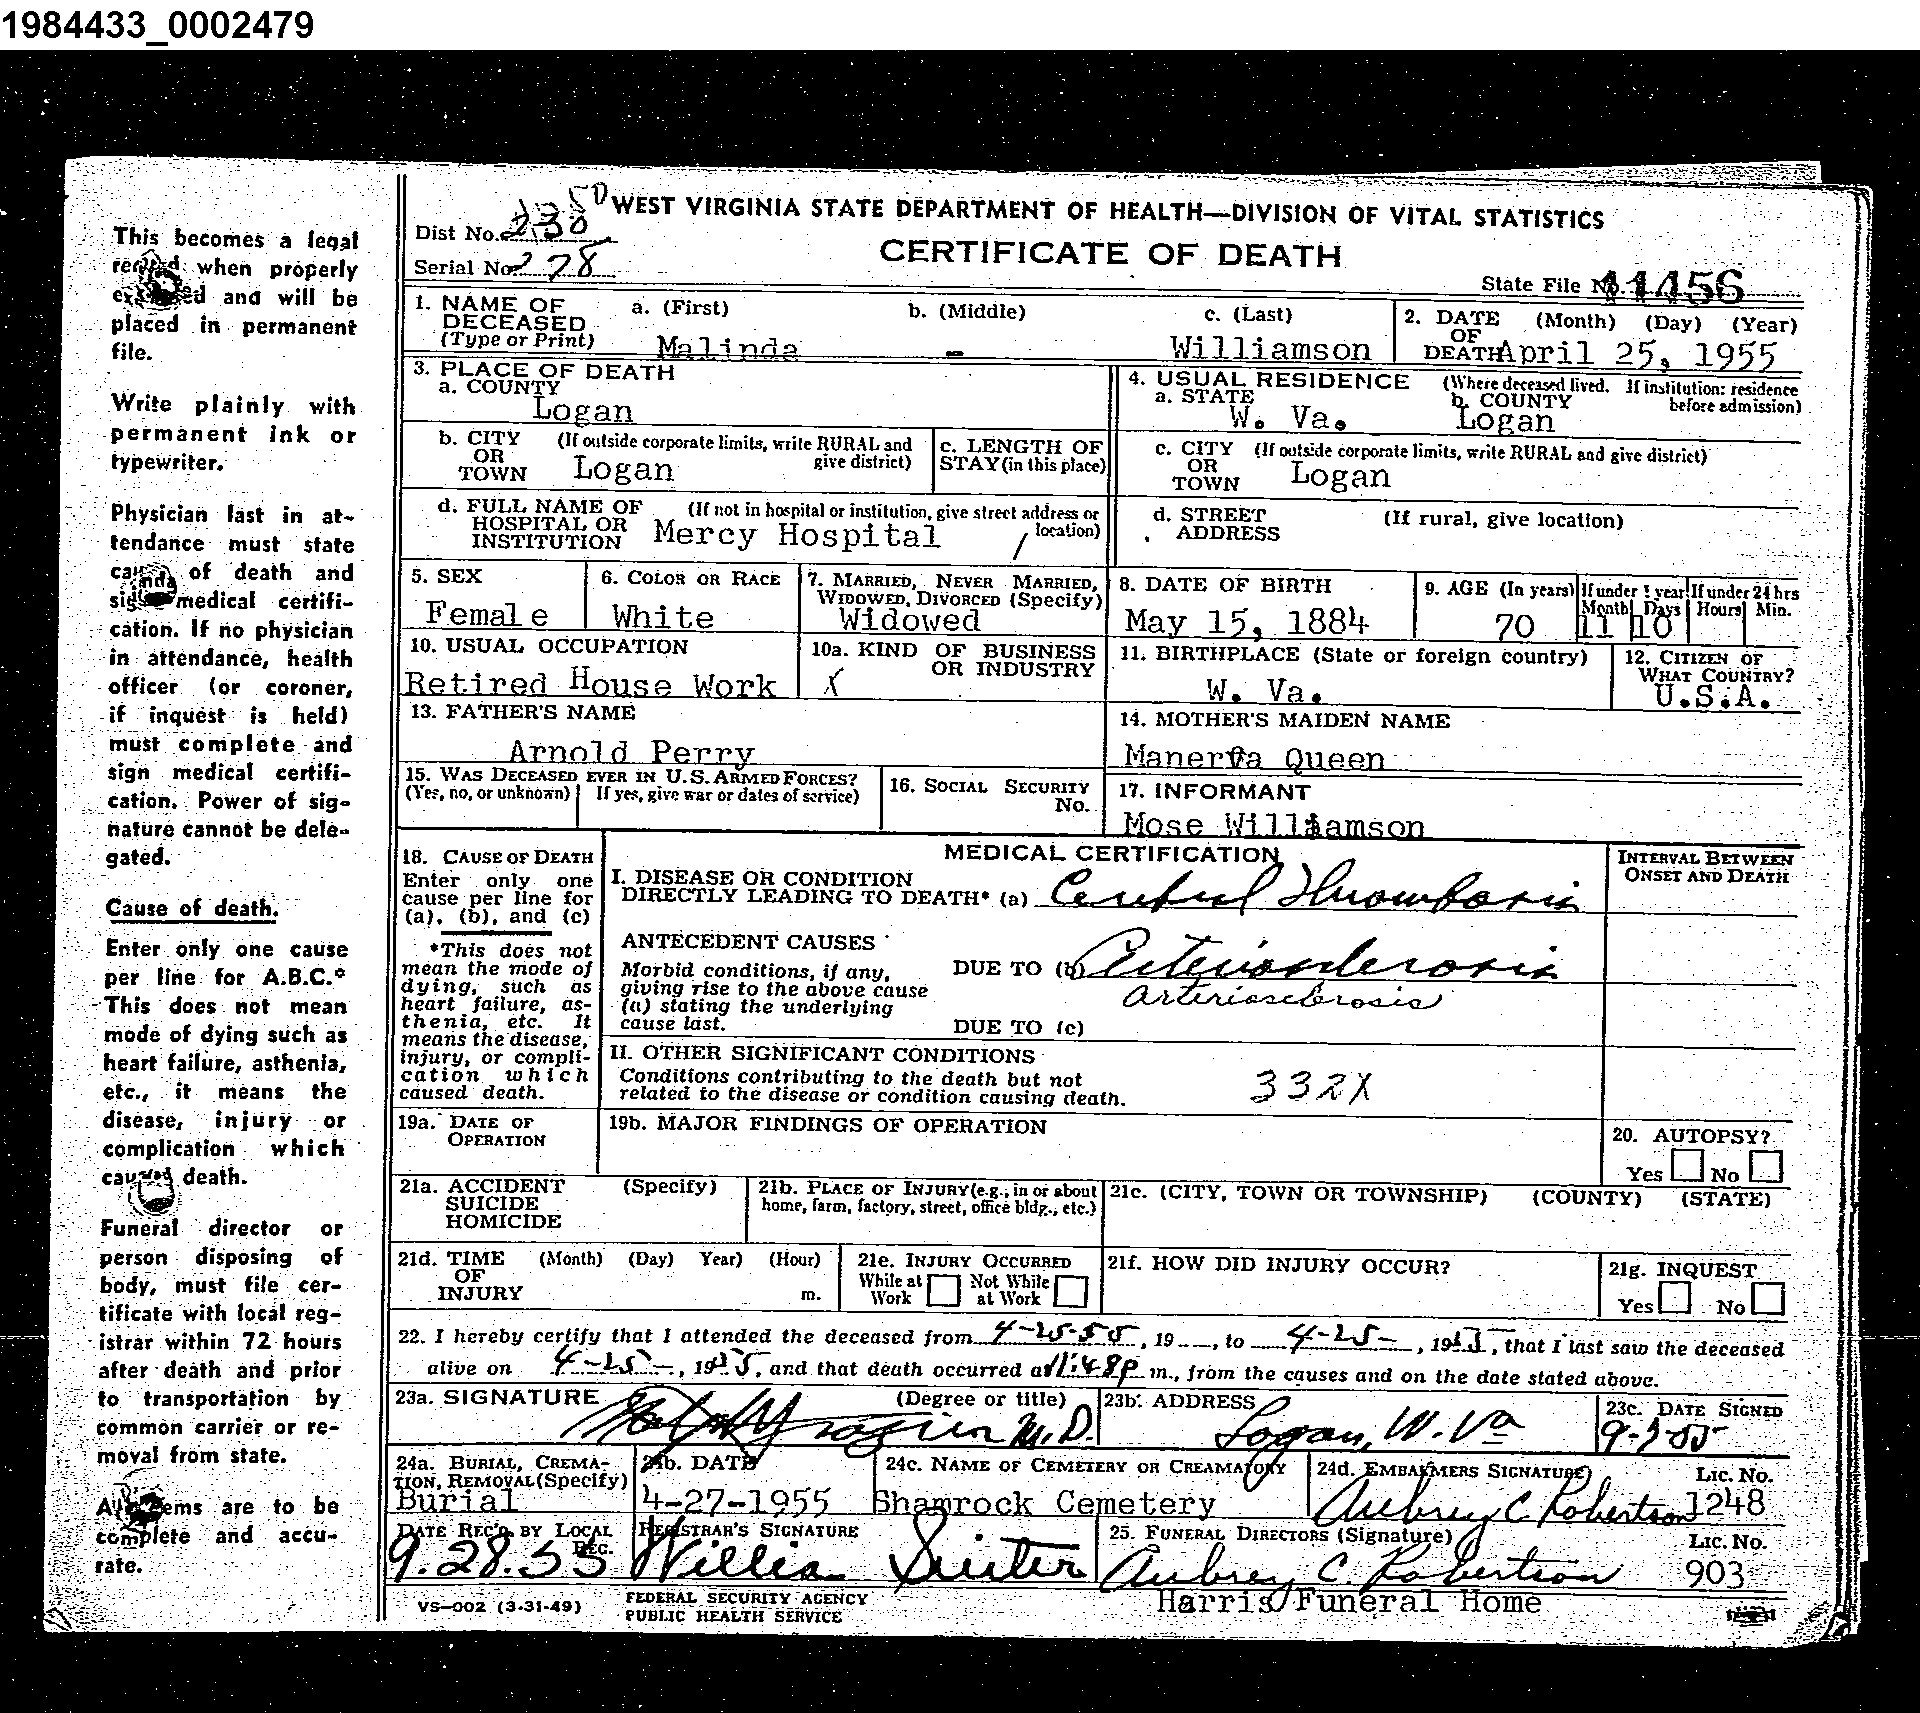 1984433_0002479
This becomes a legal
when properly
and will be
placed in permanent
file.
Write plainly with
permanent ink or
typewriter.
Physician last in at-
tendance must state
of death and
medical certifi-
cation. If no physician
in attendance, health
officer (or coroner,
if inquest is held)
must complete and
sign medical certifi-
cation. Power of sig-
nature cannot be dele-
gated.
Cause of death.
Enter only one cause
per line for A.B.C.*
This does not mean
mode of dying such as
heart failure, asthenia,
etc., it means the
disease, injury or
complication which
caused death.
Funeral director or
person disposing of
body, must file cer-
tificate with local reg-
istrar within 72 hours
after death and prior
to transportation by
common carrier or re-
moval from state.
are to be
complete and accu-
rate.
WEST VIRGINIA STATE DEPARTMENT OF HEALTH—DIVISION OF VITAL STATISTICS
Dist No.
CERTIFICATE OF DEATH
Serial No. 278
State File No. 11456
1. NAME OF DECEASED (Type or Print) a. (First) b. (Middle) c. (Last)
Malinda - Williamson
2. DATE OF DEATH (Month) (Day) (Year)
April 25, 1955
3. PLACE OF DEATH
a. COUNTY
Logan
4. USUAL RESIDENCE (Where deceased lived. If institution: residence before admission)
a. STATE W. Va. b. COUNTY Logan
b. CITY OR TOWN (If outside corporate limits, write RURAL and give district)
Logan
c. LENGTH OF STAY (in this place)
c. CITY OR TOWN (If outside corporate limits, write RURAL and give district)
Logan
d. FULL NAME OF HOSPITAL OR INSTITUTION (If not in hospital or institution, give street address or location)
Mercy Hospital /
d. STREET ADDRESS (If rural, give location)
5. SEX
Female
6. COLOR OR RACE
White
7. MARRIED, NEVER MARRIED, WIDOWED, DIVORCED (Specify)
Widowed
8. DATE OF BIRTH
May 15, 1884
9. AGE (In years) If under 1 year If under 24 hrs
Month Days Hours Min.
70 11 10
10. USUAL OCCUPATION
Retired House Work
10a. KIND OF BUSINESS OR INDUSTRY
X
11. BIRTHPLACE (State or foreign country)
W. Va.
12. CITIZEN OF WHAT COUNTRY?
U.S.A.
13. FATHER'S NAME
Arnold Perry
14. MOTHER'S MAIDEN NAME
Manerva Queen
15. WAS DECEASED EVER IN U.S. ARMED FORCES?
(Yes, no, or unknown) If yes, give war or dates of service)
16. SOCIAL SECURITY No.
17. INFORMANT
Mose Williamson
18. CAUSE OF DEATH
Enter only one
cause per line for
(a), (b), and (c)
*This does not
mean the mode of
dying, such as
heart failure, as-
thenia, etc. It
means the disease,
injury, or compli-
cation which
caused death.
MEDICAL CERTIFICATION
INTERVAL BETWEEN ONSET AND DEATH
I. DISEASE OR CONDITION
DIRECTLY LEADING TO DEATH* (a) Cerebral Thrombosis
ANTECEDENT CAUSES
Morbid conditions, if any,
giving rise to the above cause
(a) stating the underlying
cause last.
DUE TO (b) Arteriosclerosis
arteriosclerosis
DUE TO (c)
II. OTHER SIGNIFICANT CONDITIONS
Conditions contributing to the death but not
related to the disease or condition causing death.
332X
19a. DATE OF OPERATION
19b. MAJOR FINDINGS OF OPERATION
20. AUTOPSY?
Yes No
21a. ACCIDENT SUICIDE HOMICIDE (Specify)
21b. PLACE OF INJURY (e.g., in or about home, farm, factory, street, office bldg., etc.)
21c. (CITY, TOWN OR TOWNSHIP) (COUNTY) (STATE)
21d. TIME OF INJURY (Month) (Day) Year) (Hour) m.
21e. INJURY OCCURRED
While at Work Not While at Work
21f. HOW DID INJURY OCCUR?
21g. INQUEST
Yes No
22. I hereby certify that I attended the deceased from 4-25-55, 19 , to 4-25-, 1955, that I last saw the deceased
alive on 4-25-, 1955, and that death occurred at 11:48p m., from the causes and on the date stated above.
23a. SIGNATURE (Degree or title)
M.D.
23b. ADDRESS
Logan, W. Va
23c. DATE SIGNED
24a. BURIAL, CREMA-
TION, REMOVAL (Specify)
Burial
24b. DATE
4-27-1955
24c. NAME OF CEMETERY OR CREAMATORY
Shamrock Cemetery
24d. EMBALMERS SIGNATURE) Lic. No.
Aubrey C. Robertson 1248
DATE REC'D BY LOCAL REG.
9.28.55
REGISTRAR'S SIGNATURE
25. FUNERAL DIRECTORS (Signature) Lic. No.
Aubrey C. Robertson 903
Harris Funeral Home
VS-002 (3-31-49)
FEDERAL SECURITY AGENCY
PUBLIC HEALTH SERVICE